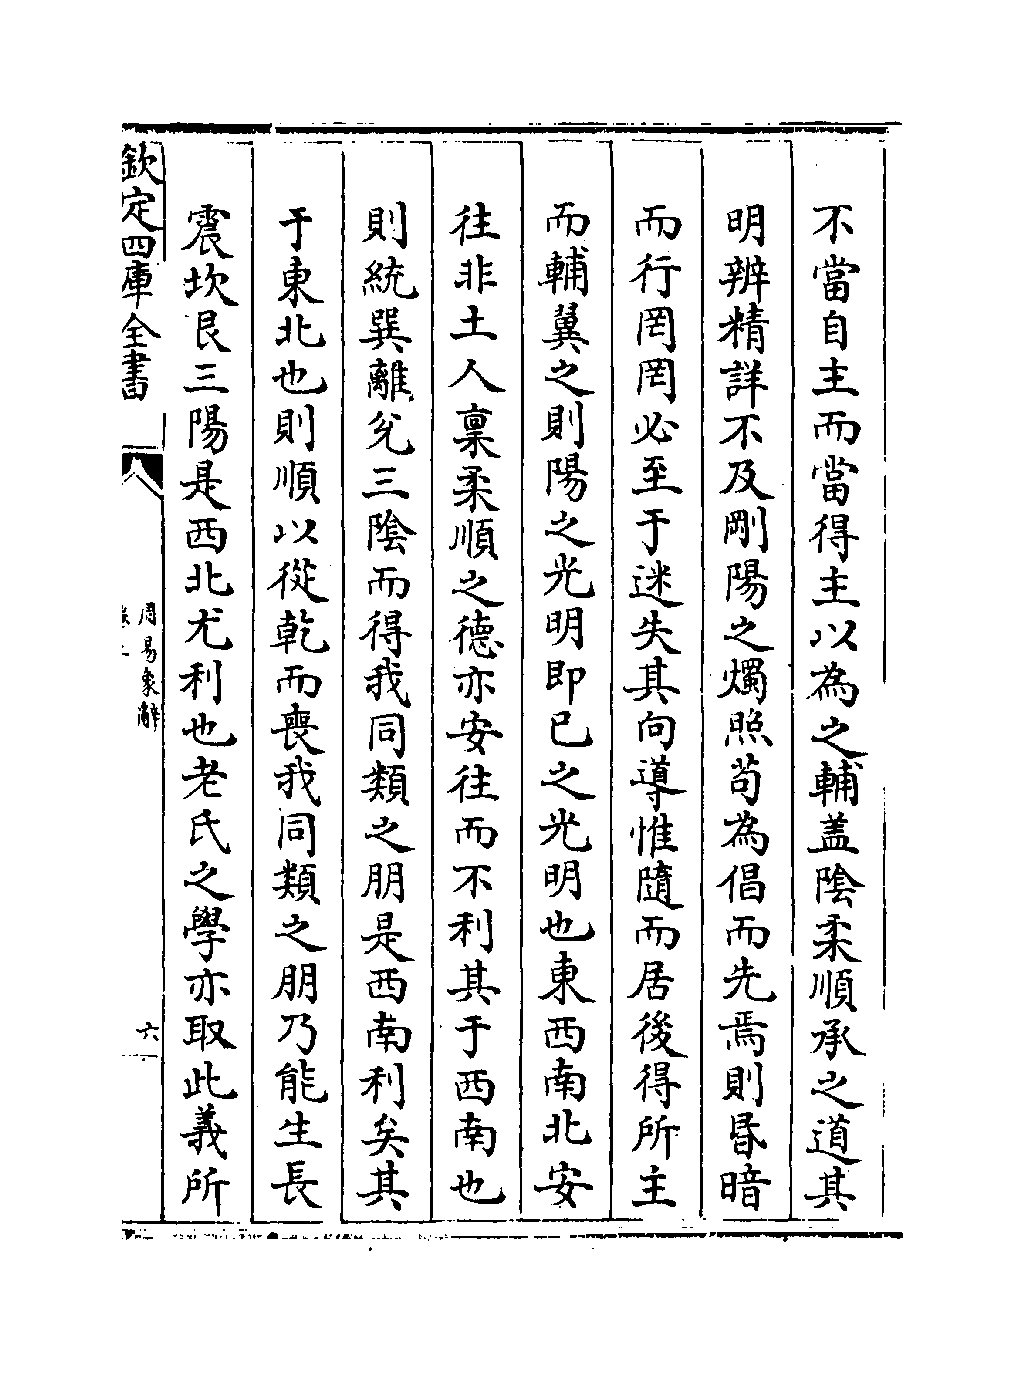 不當自主而當得主以為之輔盖陰柔順承之道其
明辨精詳不及剛陽之燭照苟為倡而先焉則昬暗
而行罔罔必至于迷失其向導惟隨而居後得所主
而輔翼之則陽之光明即已之光明也東西南北安
往非土人稟柔順之德亦安往而不利其于西南也
則統巽離兊三陰而得我同類之朋是西南利矣其
于東北也則順以從乾而喪我同類之朋乃能生長
震坎艮三陽是西北尤利也老氏之學亦取此義所
欽定四庫全書
周易象辭
六